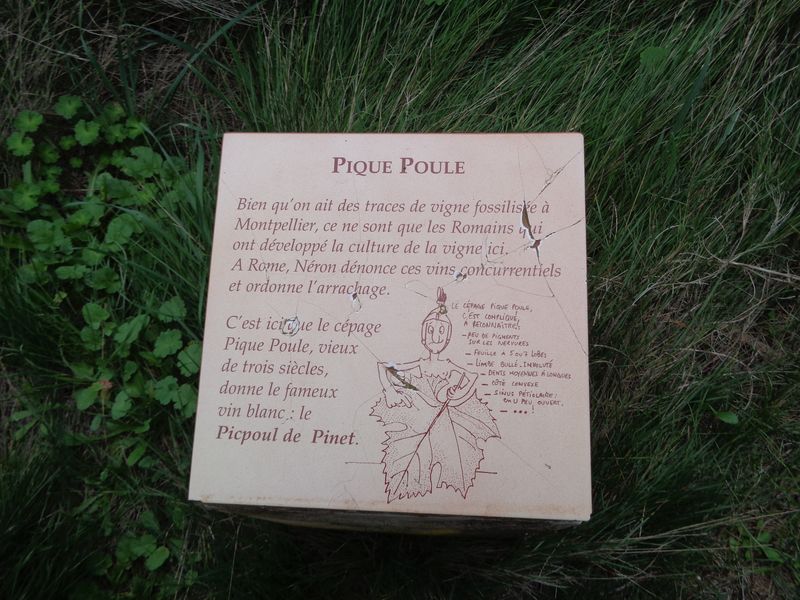 PIQUE POULE
Bien qu'on ait des traces de vigne fossilisée à
Montpellier, ce ne sont que les Romains qui
ont développé la culture de la vigne ici.
A Rome, Néron dénonce ces vins concurrentiels
et ordonne l'arrachage.
C'est ici que le cépage
Pique Poule, vieux
de trois siècles,
donne le fameux
vin blanc : le
Picpoul de Pinet.
LE CÉPAGE PIQUE POULE,
C'EST COMPLIQUÉ,
À RECONNAITRE!
- PEU DE PIGMENTS
SUR LES NERVURES
- FEUILLE À 5 OU 7 LOBES
- LIMBE BULLÉ - INVOLUTÉ
- DENTS MOYENNES À LONGUES
- CÔTÉ CONVEXE
- SINUS PÉTIOLAIRE:
EN U PEU OUVERT.
- ...!